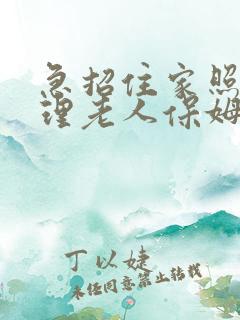 急招住家照
理老人保姆
丁以婕
未经同意禁止转载